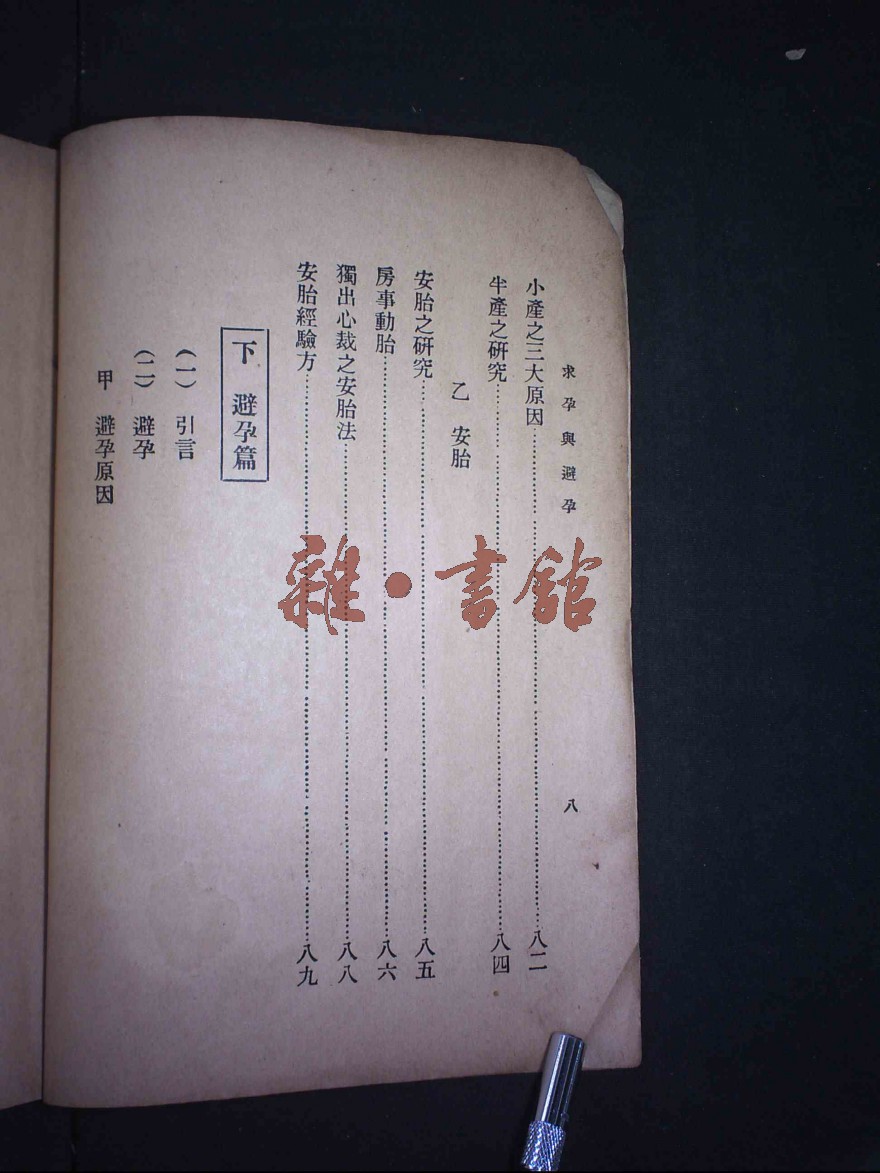 求孕與避孕
八
小產之三大原因⋯⋯⋯⋯⋯⋯⋯⋯八二
半產之研究⋯⋯⋯⋯⋯⋯⋯⋯八四
乙 安胎
安胎之研究⋯⋯⋯⋯⋯⋯⋯⋯八五
房事動胎⋯⋯⋯⋯⋯⋯⋯⋯八六
獨出心裁之安胎法⋯⋯⋯⋯⋯⋯⋯⋯八八
安胎經驗方⋯⋯⋯⋯⋯⋯⋯⋯八九
下 避孕篇
(一) 引言
(二) 避孕
甲 避孕原因
雜·書館